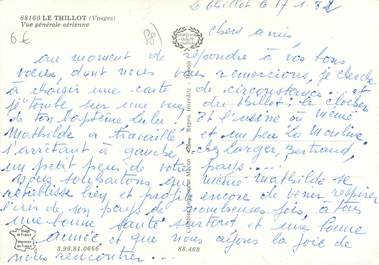 88160 LE THILLOT (Vosges)
Vue générale aérienne
6€
Le Thillot le 17.1.82
Chers amis,
au moment de répondre à vos bons
voeux, dont nous vous remercions, je cherche
à choisir une carte de circonstance; et
je tombe sur une vue du Thillot: le clocher
de ton baptême Lulu! Et l'usine où mémé
Mathilde a travaillé et un peu la Mouline
s'arrêtant à gauche chez Larger, Bertrand,
un petit peu de votre pays...
Nous souhaitons que mémé Mathilde se
rétablisse bien et profite encore de venir respirer
l'air de son pays de nombreuses fois, à tous
une bonne santé surtout et une bonne
année et que nous ayons la joie de
nous rencontrer...
3.99.81.0666
88.468